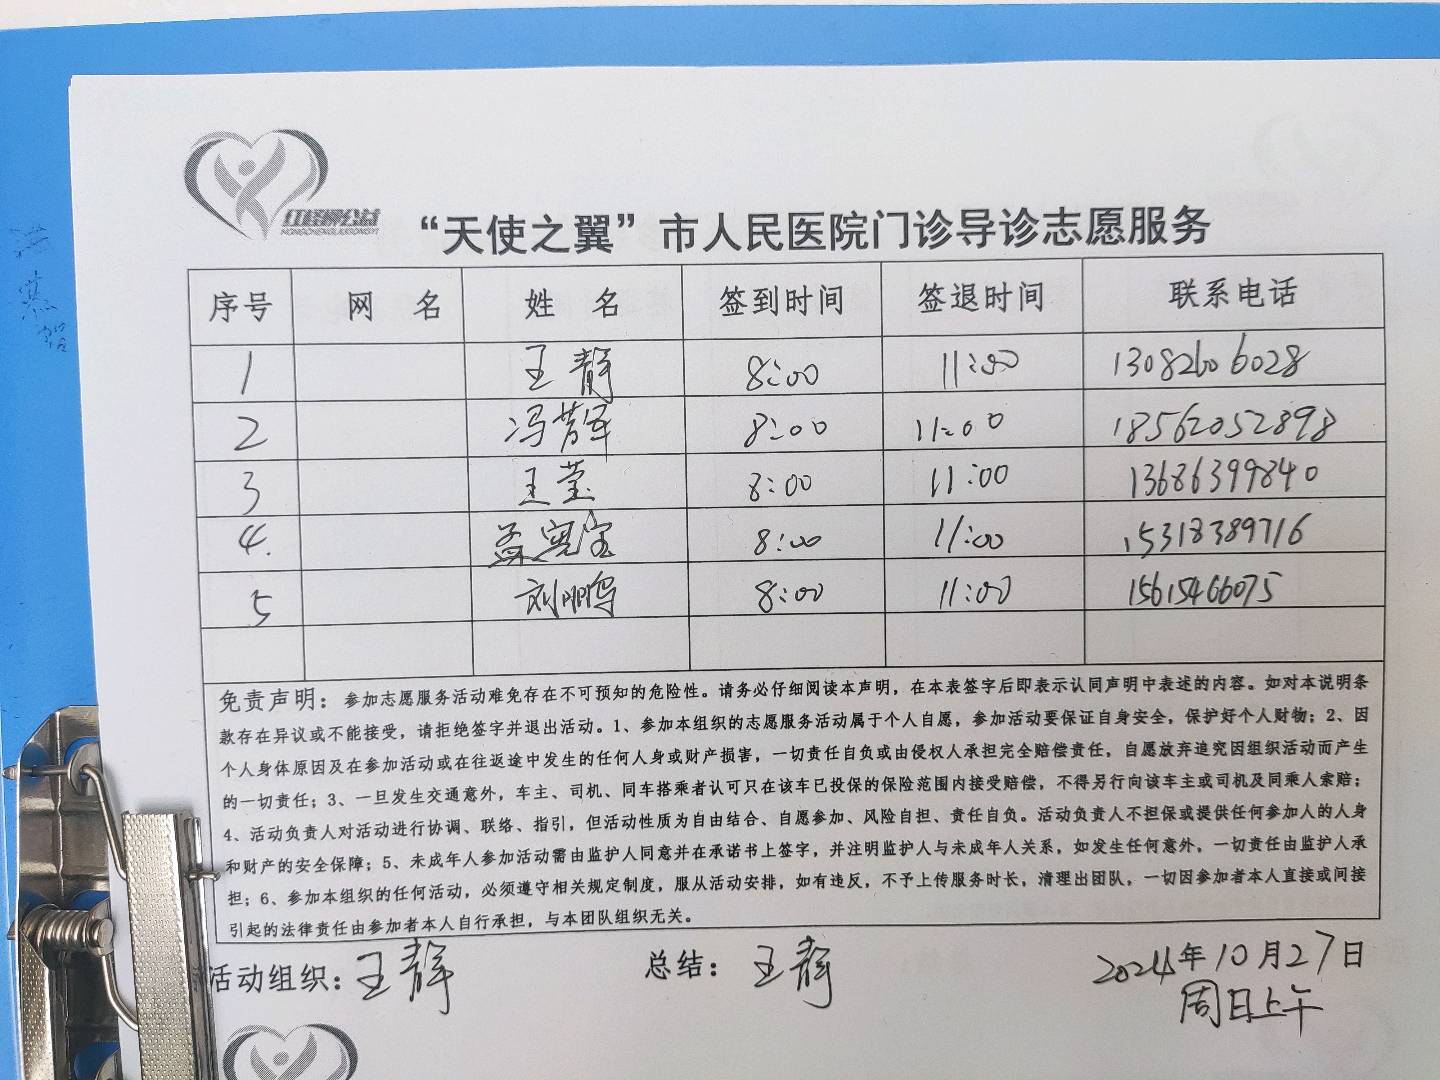 红橙柳公益
HONGCHENGLIUGONGYI
“天使之翼”市人民医院门诊导诊志愿服务
序号 网 名 姓 名 签到时间 签退时间 联系电话
1 王静 8:00 11:00 13082606028
2 冯芳军 8:00 11:00 18562052898
3 王莹 8:00 11:00 13686399840
4. 孟宪宝 8:00 11:00 15318389716
5 刘鹏 8:00 11:00 15615466075
免责声明：参加志愿服务活动难免存在不可预知的危险性。请务必仔细阅读本声明，在本表签字后即表示认同声明中表述的内容。如对本说明条
款存在异议或不能接受，请拒绝签字并退出活动。1、参加本组织的志愿服务活动属于个人自愿，参加活动要保证自身安全，保护好个人财物；2、因
个人身体原因及在参加活动或在往返途中发生的任何人身或财产损害，一切责任自负或由侵权人承担完全赔偿责任，自愿放弃追究因组织活动而产生
的一切责任；3、一旦发生交通意外，车主、司机、同车搭乘者认可只在该车已投保的保险范围内接受赔偿，不得另行向该车主或司机及同乘人索赔；
4、活动负责人对活动进行协调、联络、指引，但活动性质为自由结合、自愿参加、风险自担、责任自负。活动负责人不担保或提供任何参加人的人身
和财产的安全保障；5、未成年人参加活动需由监护人同意并在承诺书上签字，并注明监护人与未成年人关系，如发生任何意外，一切责任由监护人承
担；6、参加本组织的任何活动，必须遵守相关规定制度，服从活动安排，如有违反，不予上传服务时长，清理出团队，一切因参加者本人直接或间接
引起的法律责任由参加者本人自行承担，与本团队组织无关。
活动组织：王静 总结：王静 2024年10月27日
周日上午